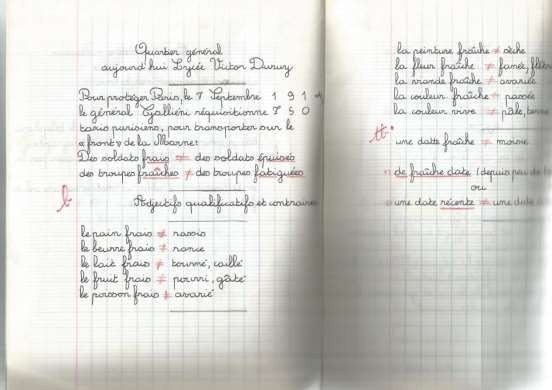 Quartier général
aujourd'hui Lycée Victor Duruy
Pour protéger Paris, le 7 Septembre 1 9 1 4
le général Galliéni réquisitionne 7 5 0
taxis parisiens, pour transporter sur le
« front » de la Marne:
Des soldats frais ≠ des soldats épuisés
des troupes fraîches ≠ des troupes fatiguées
Adjectifs qualificatifs et contraires
le pain frais ≠ rassis
le beurre frais ≠ rance
le lait frais ≠ tourné, caillé
le fruit frais ≠ pourri, gâté
le poisson frais ≠ avarié
la peinture fraîche ≠ sèche
la fleur fraîche ≠ fanée,
la viande fraîche ≠ avariée
la couleur fraîche ≠ passée
la couleur vive ≠ pâle, terne
une datte fraîche ≠
de fraîche date (depuis peu de
ou
une date récente ≠ une date